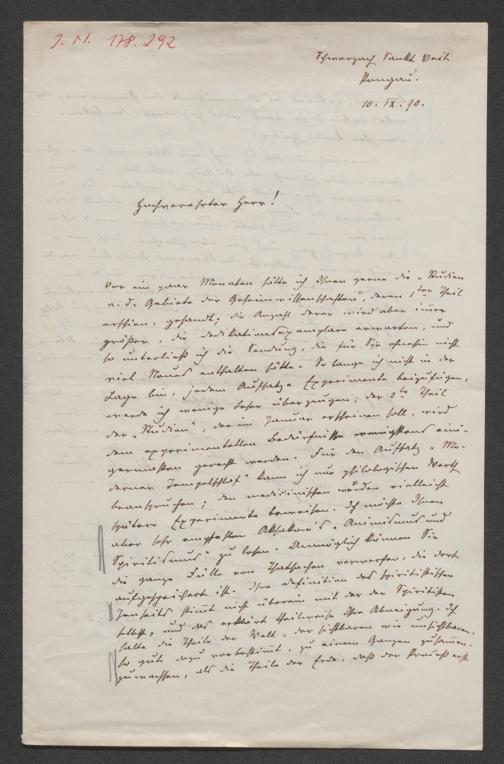 J. N. 178.292
Schwarzach Sankt Veit
Pongau.
10. IX. 90.
Hochverehrter Herr!
Vor ein paar Monaten hätte ich Ihnen gerne die "Studien
a. d. Gebiete der Geheimwissenschaften", deren 1ter Theil
erschien, gesandt; die Anzahl derer wird aber immer
größer, die Dedikationsexemplare erwarten, und
so unterließ ich die Sendung, die für Sie ohnehin nicht
viel Neues enthalten hätte. So lange ich nicht in der
Lage bin, jedem Aufsatze Experimente beizufügen,
werde ich wenige Leser überzeugen; der 2te Theil
der "Studien", der im Januar erscheinen soll, wird
dem experimentellen Bedürfnisse wenigstens eini-
germaßen gerecht werden. Für den Aufsatz "Mo-
derner Tempelschlaf" kann ich nur philologischen Werth
beanspruchen; den medicinischen würden vielleicht
spätere Experimente beweisen. Ich möchte Ihnen
aber sehr empfehlen Aksakow's "Animismus und
Spiritismus" zu lesen. Unmöglich können Sie
die ganze Fülle von Thatsachen verwerfen, die dort
aufgespeichert ist. Ihre Definition des spiritistischen
Jenseits stimmt nicht überein mit der der Spiritisten
selbst, und das erklärt theilweise Ihre Abneigung. Ich
halte die Theile der Welt, der sichtbaren wie unsichtbaren,
so gut dazu vorbestimmt, zu einem Ganzen zusammen-
zuwachsen, als die Theile der Erde. Daß der Proceß erst